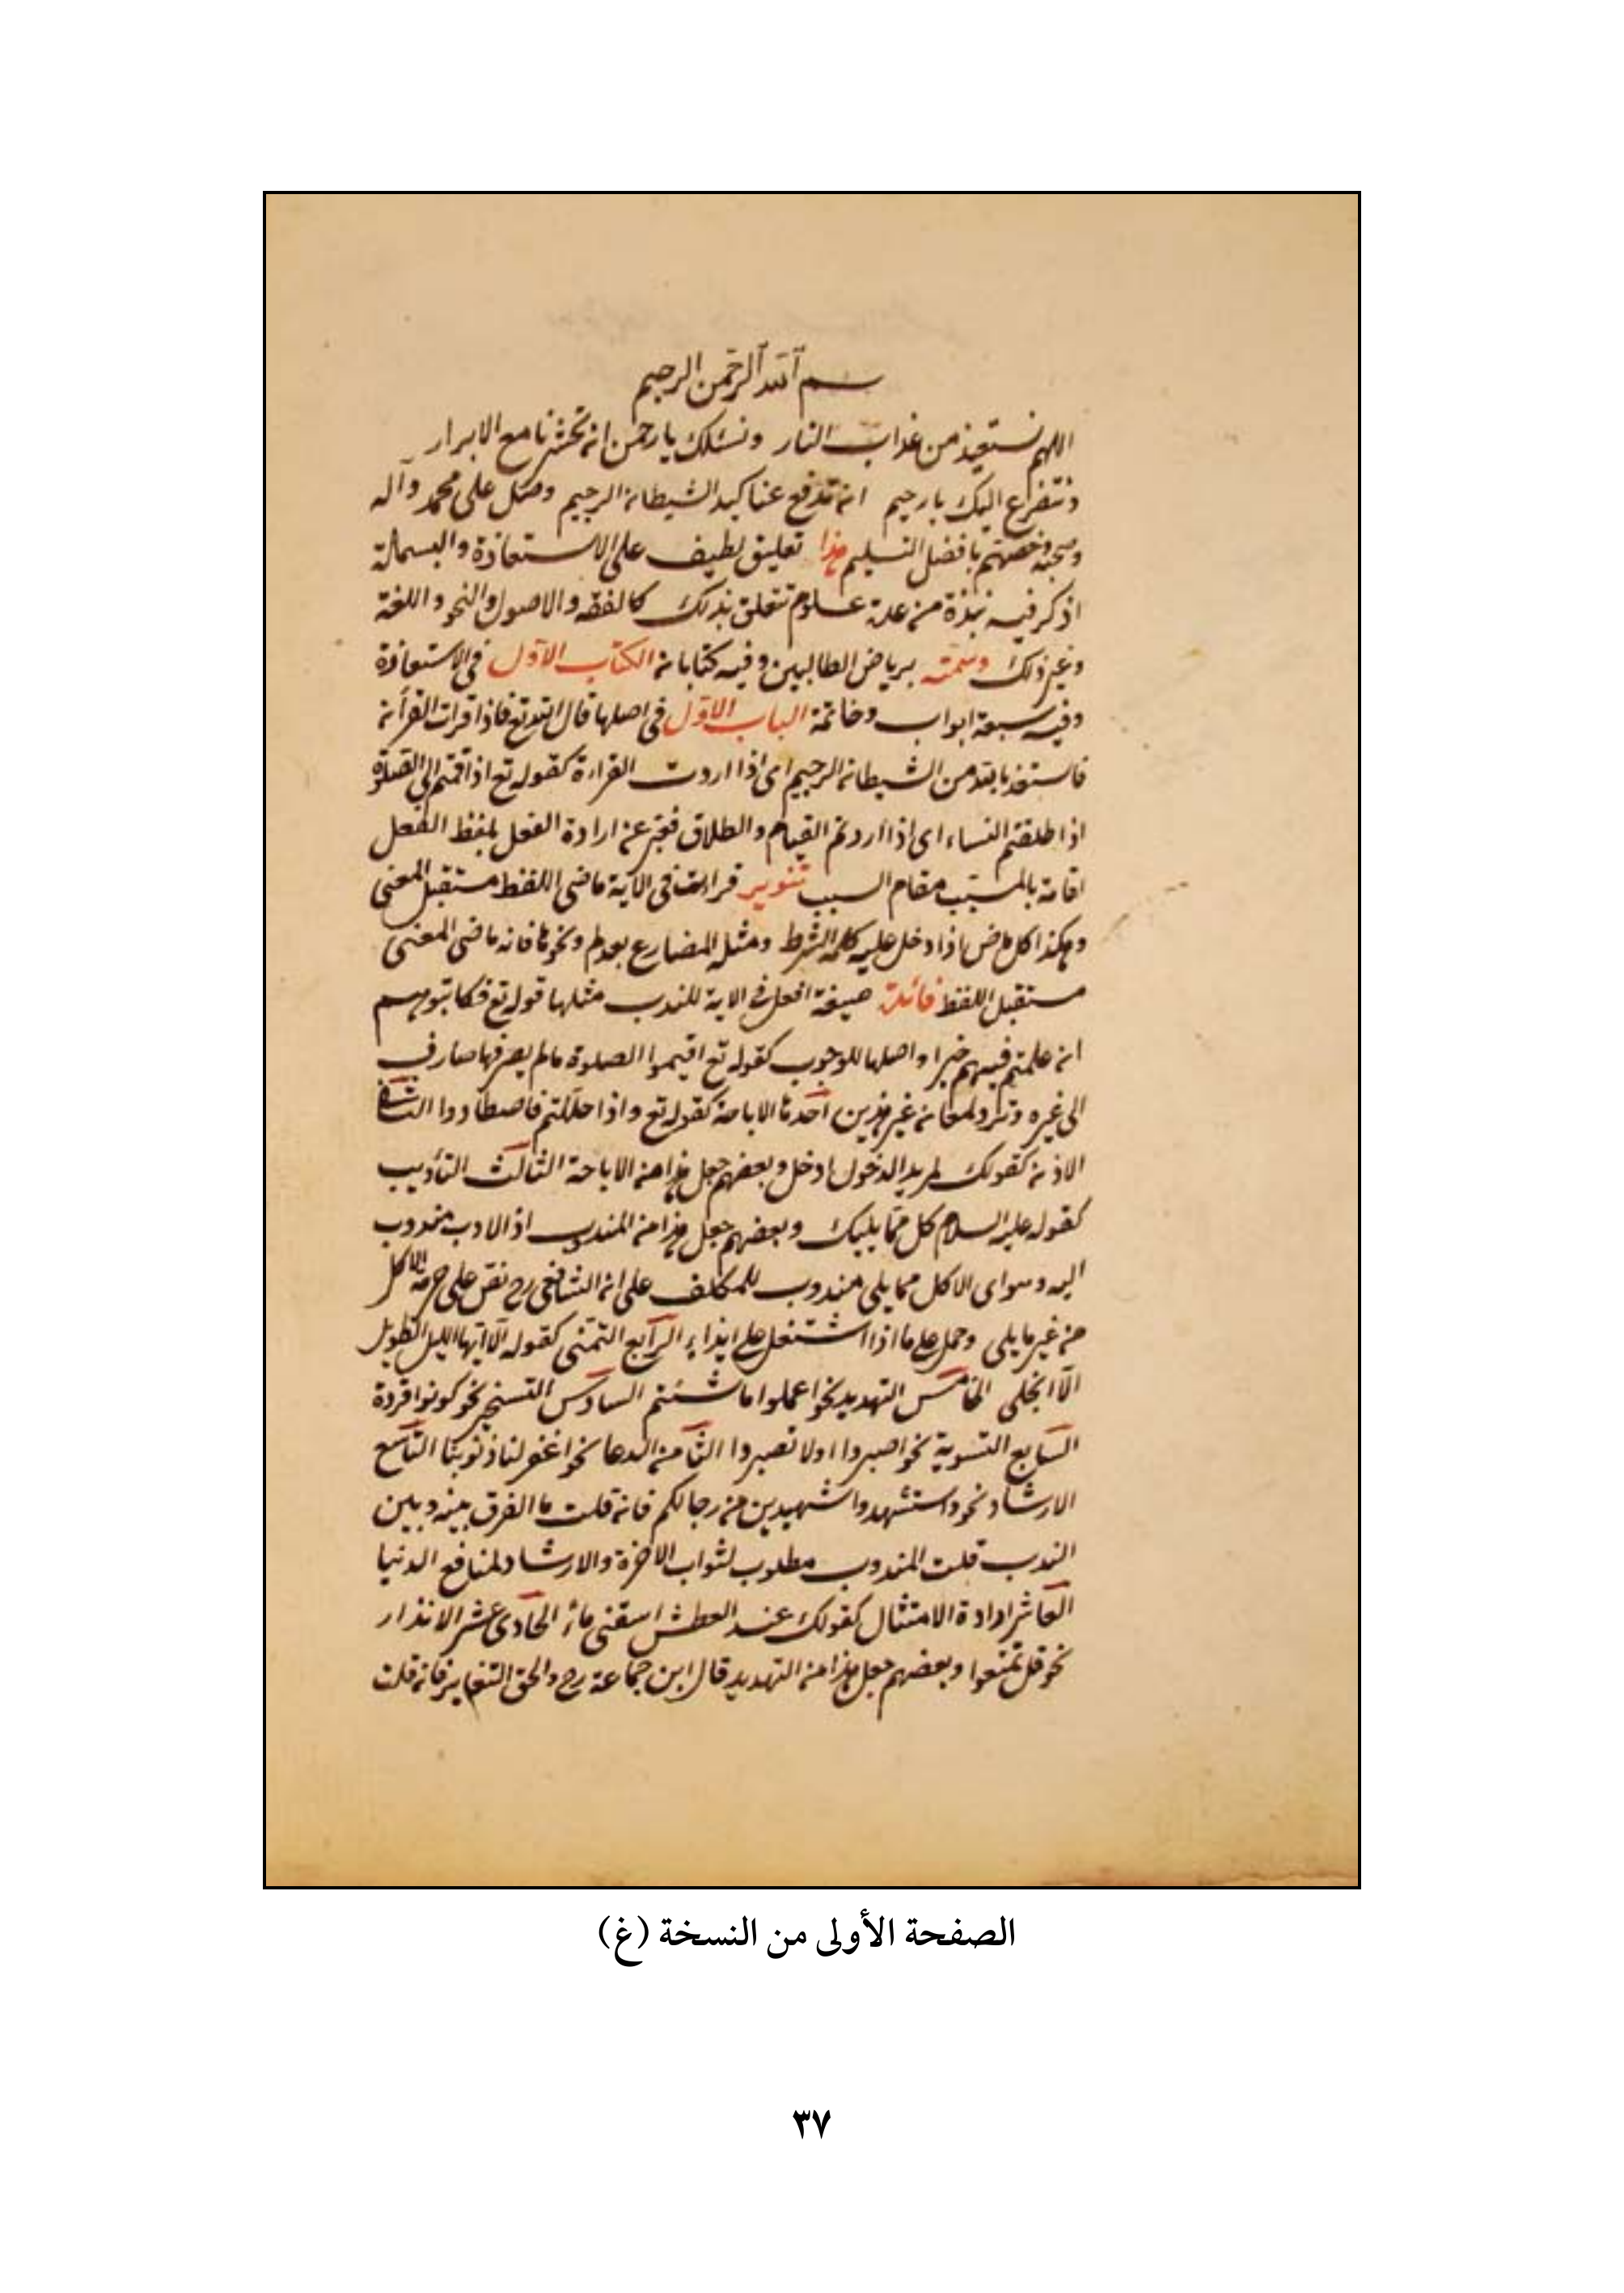 بسم الله الرحمن الرحيم
اللهم نستعيذ من عذاب النار ونسئلك يا رحمن ان تحشرنا مع الابرار
ونتضرع اليك يا رحيم ان تدفع عنا كيد الشيطان الرجيم وصل على محمد وآله
وصحبه وخصهم بافضل التسليم هذا تعليق لطيف على الاستعاذة والبسملة
اذكر فيه نبذة من عدة علوم تتعلق بذلك كالفقه والاصول والنحو واللغة
وغير ذلك وسمته برياض الطالبين وفيه كتابان الكتاب الاول في الاستعاذة
وفيه سبعة ابواب وخاتمة الباب الاول في اصلها قال الله تع فاذا قرات القرآن
فاستعذ بالله من الشيطان الرجيم اى اذا اردت القراءة كقوله تع اذا قمتم الى الصلوة
اذا طلقتم النساء اى اذا اردتم القيام والطلاق فعبر عن ارادة الفعل بلفظ الفعل
اقامة بالمسبب مقام السبب تنوير قرات في الآية ماضى اللفظ مستقبل المعنى
وهكذا كل ماض اذا دخل عليه كلمة الشرط ومثله المضارع بعد لم ونحوها فانه ماضى المعنى
مستقبل اللفظ فائدة صيغة افعل في الاية للندب مثلها قوله تع فكاتبوهم
ان علمتم فيهم خيرا واصلها للوجوب كقوله تع اقيموا الصلوة ما لم يصرفها صارف
الى غيره وترد لمعان غير هذين احدها الاباحة كقوله تع واذا حللتم فاصطادوا الثانى
الاذن كقولك لمريد الدخول ادخل وبعضهم جعل هذا من الاباحة الثالث التأديب
كقوله عليه السلام كل مما يليك وبعضهم جعل هذا من المندوب اذ الادب مندوب
اليه وهو اى الاكل مما يلى مندوب للمكلف على ان الشافعى رح نص على حرمة الاكل
من غير ما يلى وحمل على ما اذا اشتغل على ايذاء الرابع التمنى كقوله الا ايها الليل الطويل
الا انجلى الخامس التهديد نحو اعملوا ما شئتم السادس التسخير نحو كونوا قردة
السابع التسوية نحو اصبروا اولا تصبروا الثامن الدعا نحو اغفر لنا ذنوبنا التاسع
الارشاد نحو واستشهدوا شهيدين من رجالكم فان قلت ما الفرق بينه وبين
الندب قلت المندوب مطلوب لثواب الاخرة والارشاد لمنافع الدنيا
العاشر ارادة الامتثال كقولك عند العطش اسقنى ماء الحادى عشر الانذار
نحو قل تمتعوا وبعضهم جعل هذا من التهديد قال ابن جماعة رح والحق التغاير فان قلت
الصفحة الأولى من النسخة (غ)
٣٧